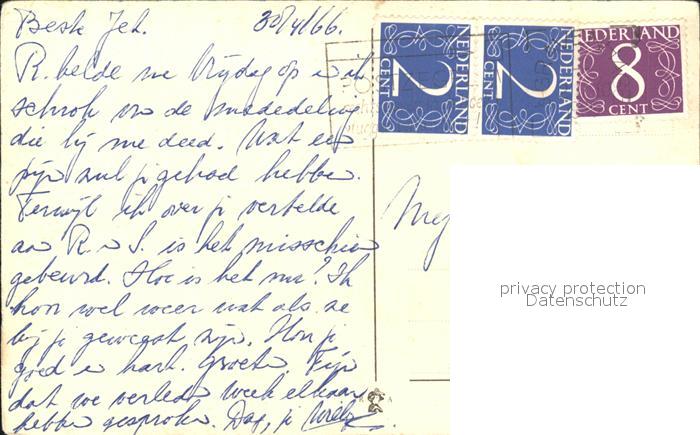 Beste Jet. 30/4/66.
R. belde me Vrijdag op en ik
schrok van de mededeling
die hij me deed. Wat een
pijn zul je gehad hebben.
Terwijl ik over je vertelde
aan R. en S. is het misschien
gebeurd. Hoe is het nu? Ik
hoor wel weer wat als ze
bij je geweest zijn. Hou je
goed en hart. Groeten. Fijn
dat we verleden week elkaar
hebben gesproken. Dag, je
NEDERLAND
2
CENT
NEDERLAND
2
CENT
NEDERLAND
8
CENT
Mej
privacy protection
Datenschutz